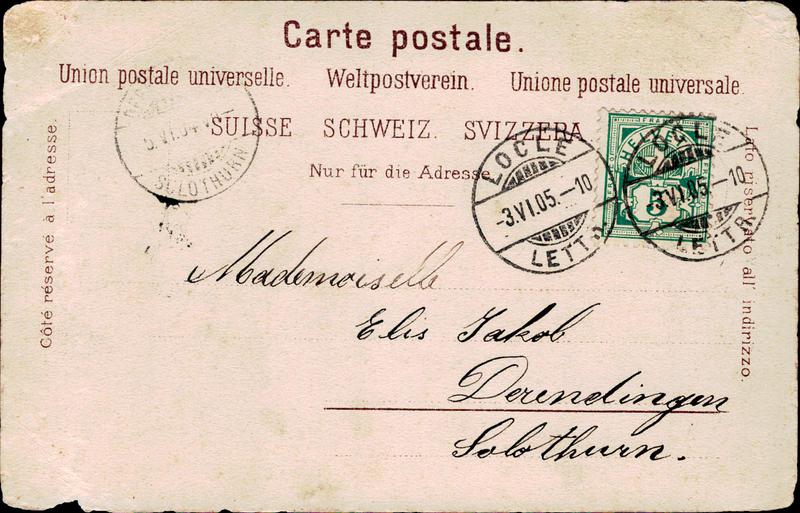 Carte postale.
Union postale universelle. Weltpostverein. Unione postale universale.
SUISSE SCHWEIZ. SVIZZERA
Nur für die Adresse.
Côté réservé à l'adresse.
Lato riservato all' indirizzo.
SOLOTHURN
LOCLE
-3.VI.05.-10
LETTR.
FRANCO
HELVETIA
5
LOCLE
-3.VI.05.-10
LETTR.
Mademoiselle
Elis Jakob
Derendingen
Solothurn.